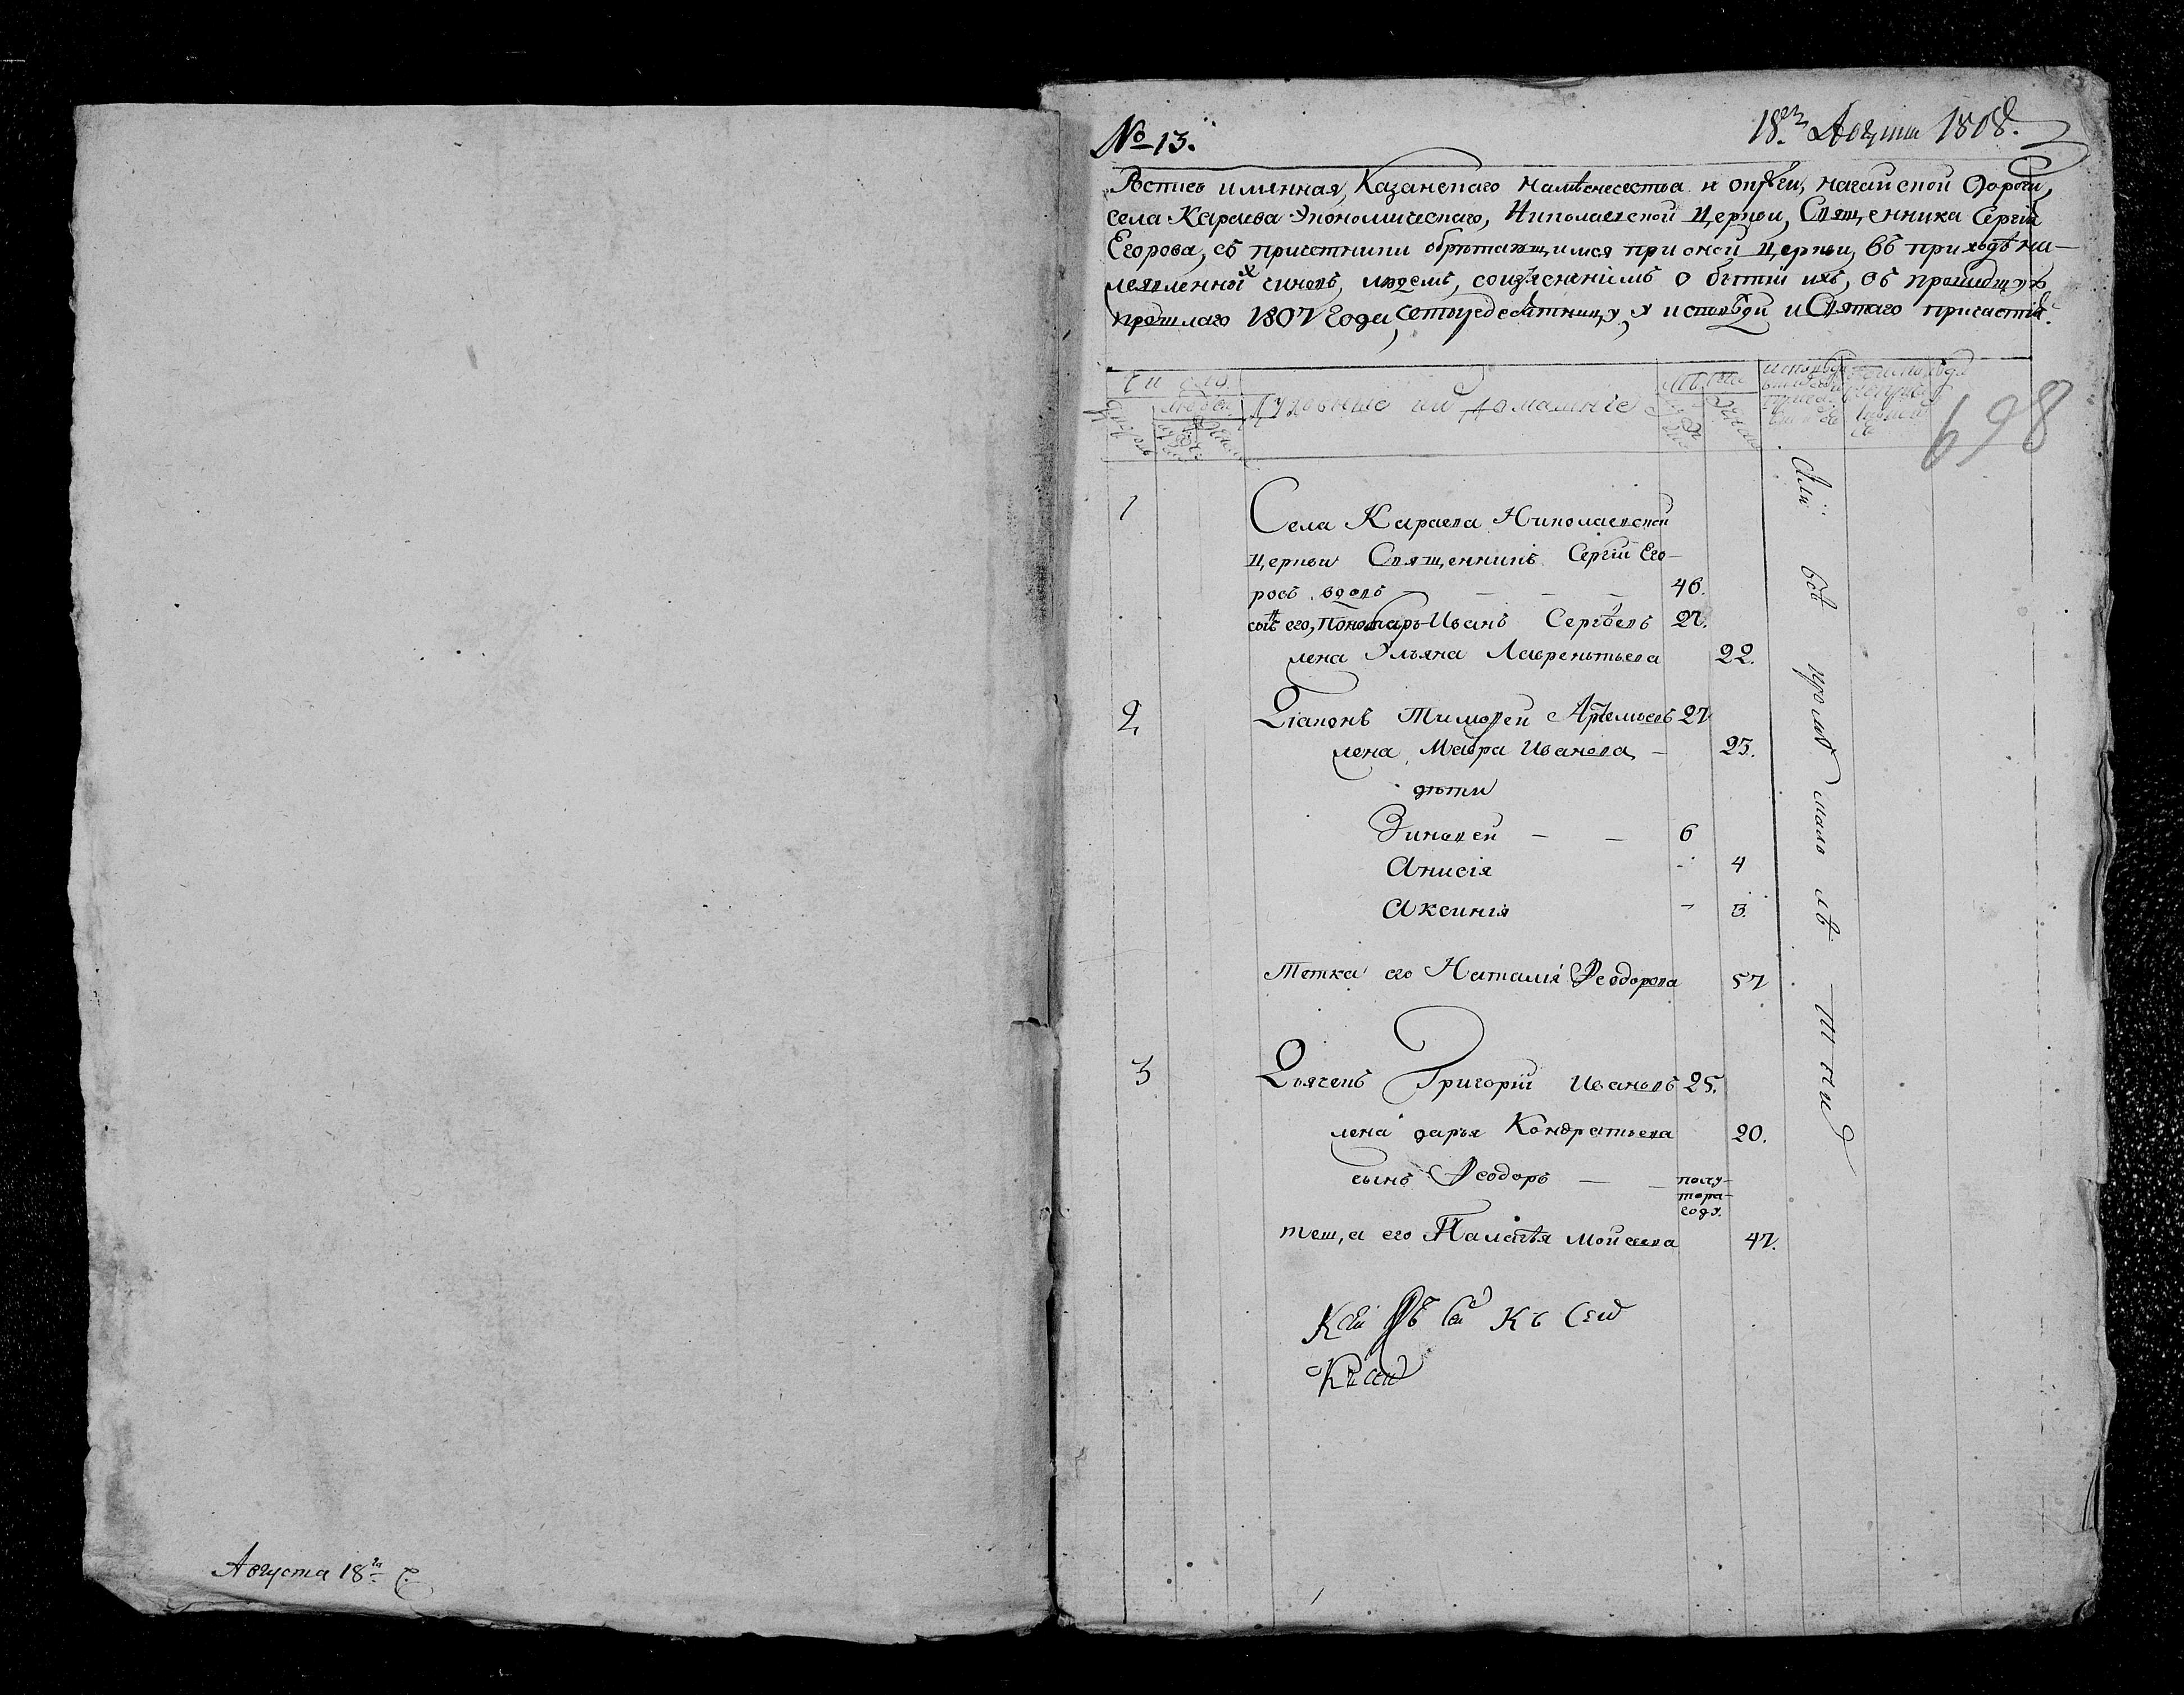 Августа 18го
№ 13.
18го Августа 1808.
Роспись имянная, Казанскаго намѣснечества и округи, нагайской дороги,
села Караева Экономическаго, Николаевской Церкви, Священника Сергія
Егорова, съ причетники обрѣтающимся при оной Церкви, въ приходѣ ни-
жеявленныхъ чиновъ, людемъ, со изъясненіемъ о бытіи ихъ,
прошлаго 1807 Года, у исповѣди и Святаго причастія.
Число
Лѣта
людей
Духовные ихъ домашніе
698
1
Села Караева Николаевской
Церкви Священникъ Сергій Его-
ровъ вдовъ — — — — 46.
сынъ его, Пономарь Иванъ Сергѣевъ 27.
жена Ульяна Лаврентьева 22.
2
Діаконъ Тимоѳей Артемьевъ 27
жена Мавра Иванова — 25.
дѣти
Зиновей — — 6
Анисія - 4
Аксинія - 3.
Тетка его Наталія Ѳеодорова 57
3
Дьячекъ Григорій Ивановъ 25.
жена дарья Кондратьева 20.
сынъ Ѳеодоръ — — полу-
тора-
году.
теща его Палагѣя Мойсеева 47.
къ сей